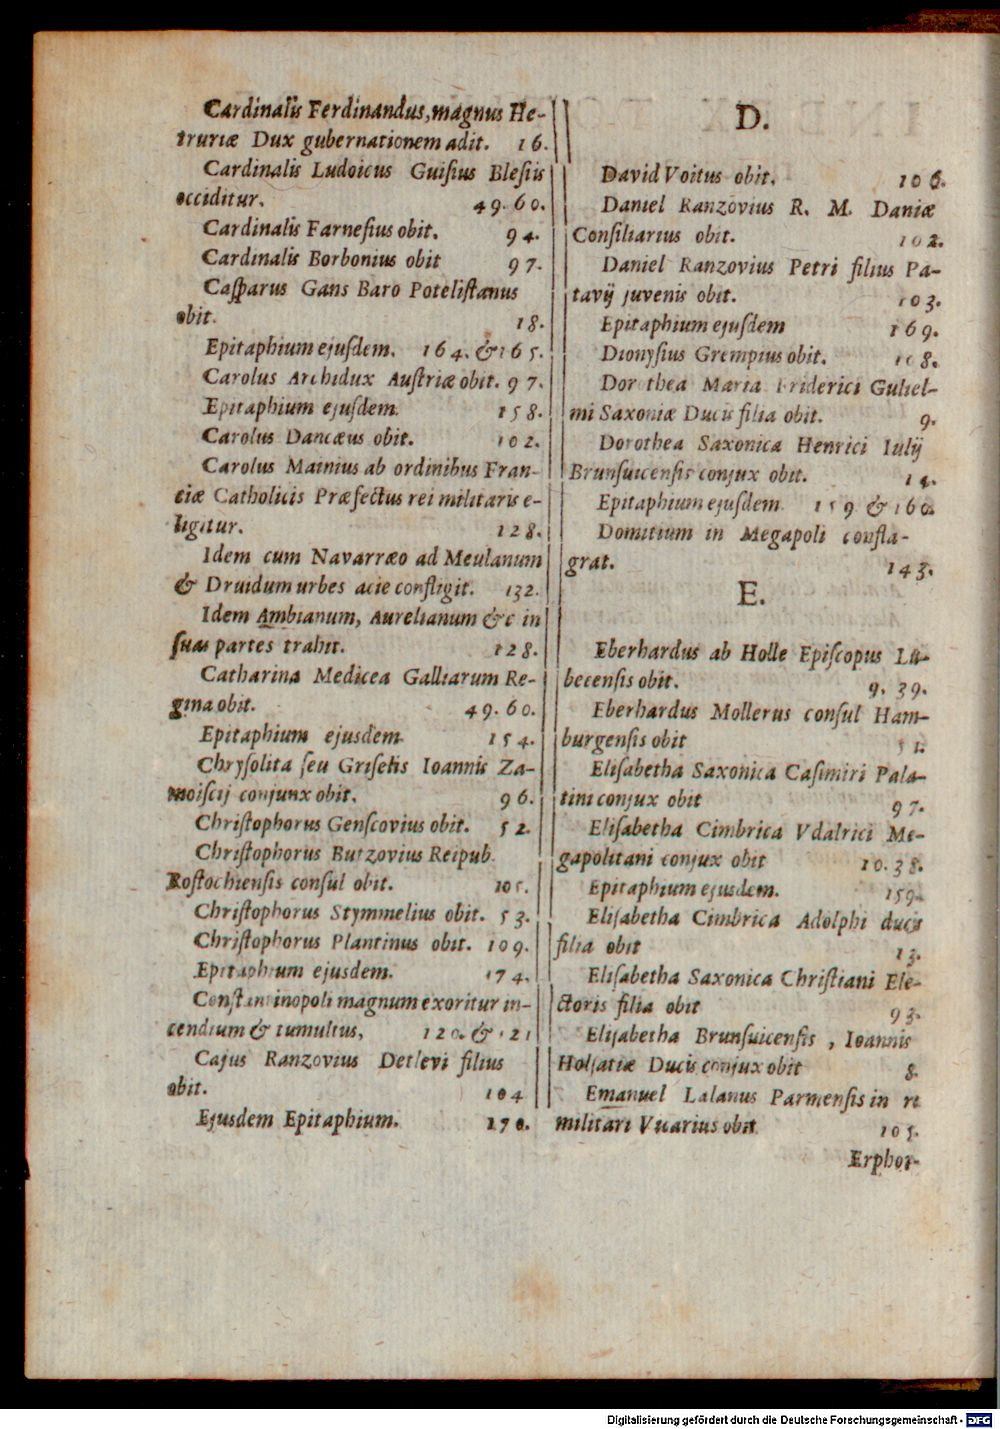 Cardinalis Ferdinandus, magnus He-
truriæ Dux gubernationem adit. 16.
Cardinalis Ludoicus Guisius Blesiis
occiditur. 49. 60.
Cardinalis Farnesius obit. 94.
Cardinalis Borbonius obit 97.
Casparus Gans Baro Potelistanus
obit. 18.
Epitaphium ejusdem. 164. & 165.
Carolus Archidux Austriæ obit. 97.
Epitaphium ejusdem. 158.
Carolus Dancæus obit. 102.
Carolus Mainius ab ordinibus Fran-
ciæ Catholicis Præfectus rei militaris e-
ligitur. 128.
Idem cum Navarræo ad Meulanum
& Druidum urbes acie confligit. 132.
Idem Ambianum, Aurelianum &c in
suas partes trahit. 128.
Catharina Medicea Galliarum Re-
gina obit. 49. 60.
Epitaphium ejusdem. 154.
Chrysolita seu Griselis Ioannis Za-
moiscij conjunx obit. 96.
Christophorus Genscovius obit. 52.
Christophorus Butzovius Reipub.
Rostochiensis consul obit. 105.
Christophorus Stymmelius obit. 53.
Christophorus Plantinus obit. 109.
Epitaphium ejusdem. 174.
Constantinopoli magnum exoritur in-
cendium & tumultus, 120. & 121
Cajus Ranzovius Detlevi filius
obit. 104
Ejusdem Epitaphium. 170.
D.
David Voitus obit. 106.
Daniel Ranzovius R. M. Daniæ
Consiliarius obit. 102.
Daniel Ranzovius Petri filius Pa-
tavij juvenis obit. 103.
Epitaphium ejusdem 169.
Dionysius Grempius obit. 108.
Dorothea Maria Friderici Guliel-
mi Saxoniæ Ducis filia obit. 9.
Dorothea Saxonica Henrici Iulij
Brunsuicensis conjux obit. 14.
Epitaphium ejusdem. 159 & 160.
Domitium in Megapoli confla-
grat. 143.
E.
Eberhardus ab Holle Episcopus Lu-
becensis obit. 9. 39.
Eberhardus Mollerus consul Ham-
burgensis obit 51.
Elisabetha Saxonica Casimiri Pala-
tini conjux obit 97.
Elisabetha Cimbrica Vdalrici Me-
gapolitani conjux obit 10. 38.
Epitaphium ejusdem. 159.
Elisabetha Cimbrica Adolphi ducis
filia obit 13.
Elisabetha Saxonica Christiani Ele-
ctoris filia obit 93.
Elisabetha Brunsuicensis, Ioannis
Holsatiæ Ducis conjux obit 8.
Emanuel Lalanus Parmensis in re
militari Vicarius obit 105.
Erphor-
Digitalisierung gefördert durch die Deutsche Forschungsgemeinschaft - DFG